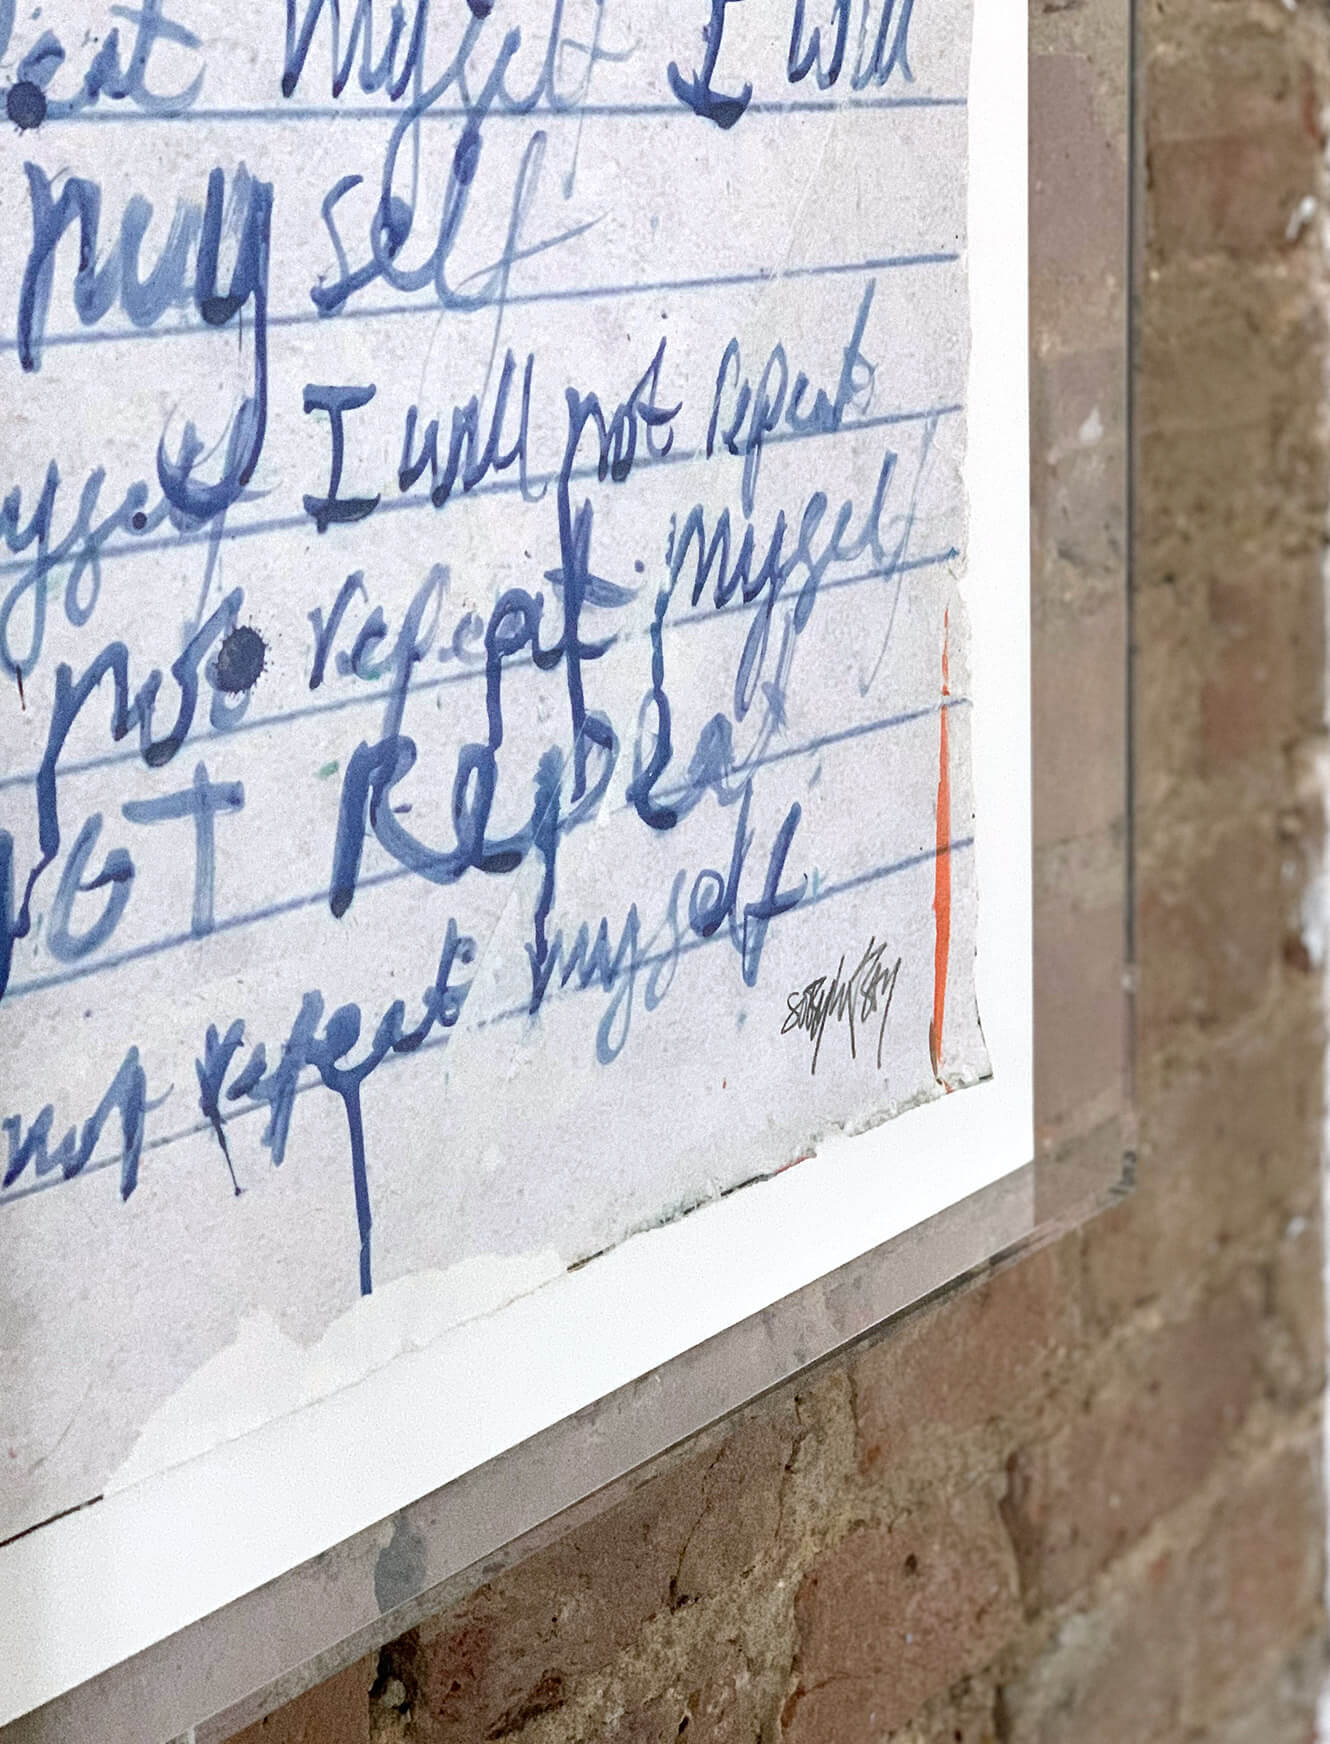 repeat myself I will
myself
myself I will not repeat
not repeat myself
NOT Repeat
not repeat myself